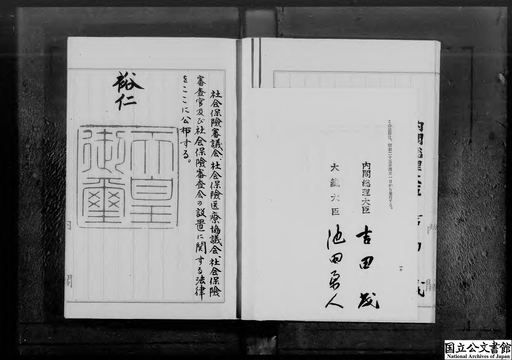 内閣総理大臣 吉田茂
大藏大臣 池田勇人
社会保險審議会、社会保險医療協議会、社会保險
審査官及び社会保險審査会の設置に関する法律
をここに公布する。
裕仁
天皇御璽
国立公文書館
National Archives of Japan